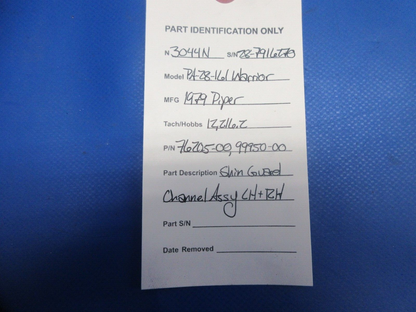 PART IDENTIFICATION ONLY
N 3044N S/N 28-7916270
Model PA-28-161 Warrior
MFG 1979 Piper
Tach/Hobbs 12,216.2
P/N 76205-00, 99950-00
Part Description Shin Guard
Channel Assy LH + RH
Part S/N
Date Removed